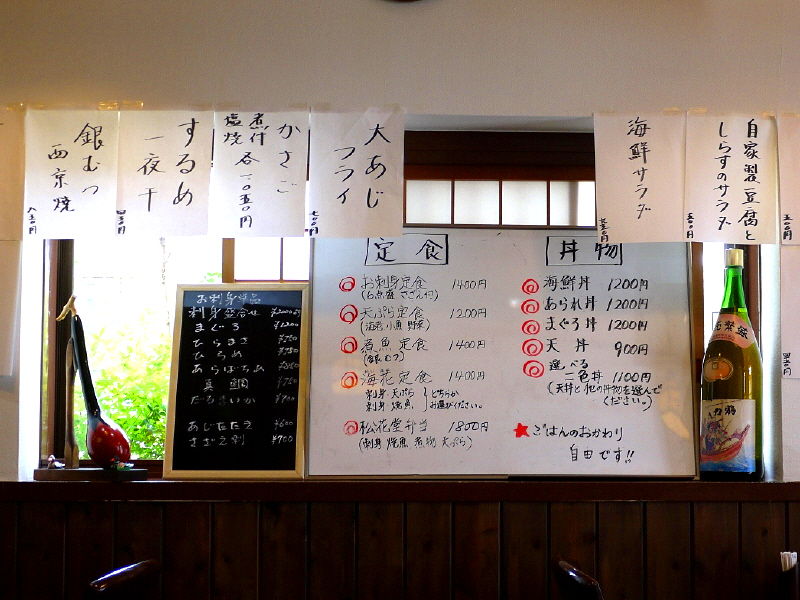 自家製豆腐と
しらすのサラダ
五〇〇円
海鮮サラダ
大あじ
フライ
七〇〇円
かさご
煮付
塩焼 各一〇五〇円
するめ
一夜干
銀むつ
西京焼
八五〇円
お刺身単品
刺身盛合せ
まぐろ ¥1200
ひらまさ
ひらめ
あらぱちゃ
真鯛
たるさいか ¥900
あじたたき ¥600
さざえ刺 ¥700
定食
お刺身定食 1400円
(6点盛 さざえ付)
天ぷら定食 1200円
(海老 小魚 野菜)
煮魚定食 1400円
(銀むつ)
海花定食 1400円
刺身 天ぷら どちらか
刺身 焼魚 お選びください。
松花堂弁当 1800円
(刺身 焼魚 煮物 天ぷら)
丼物
海鮮丼 1200円
あられ丼 1200円
まぐろ丼 1200円
天丼 900円
選べる
二色丼 1100円
(天丼と他の丼物を選んで
ください。)
★ごはんのおかわり
自由です!!